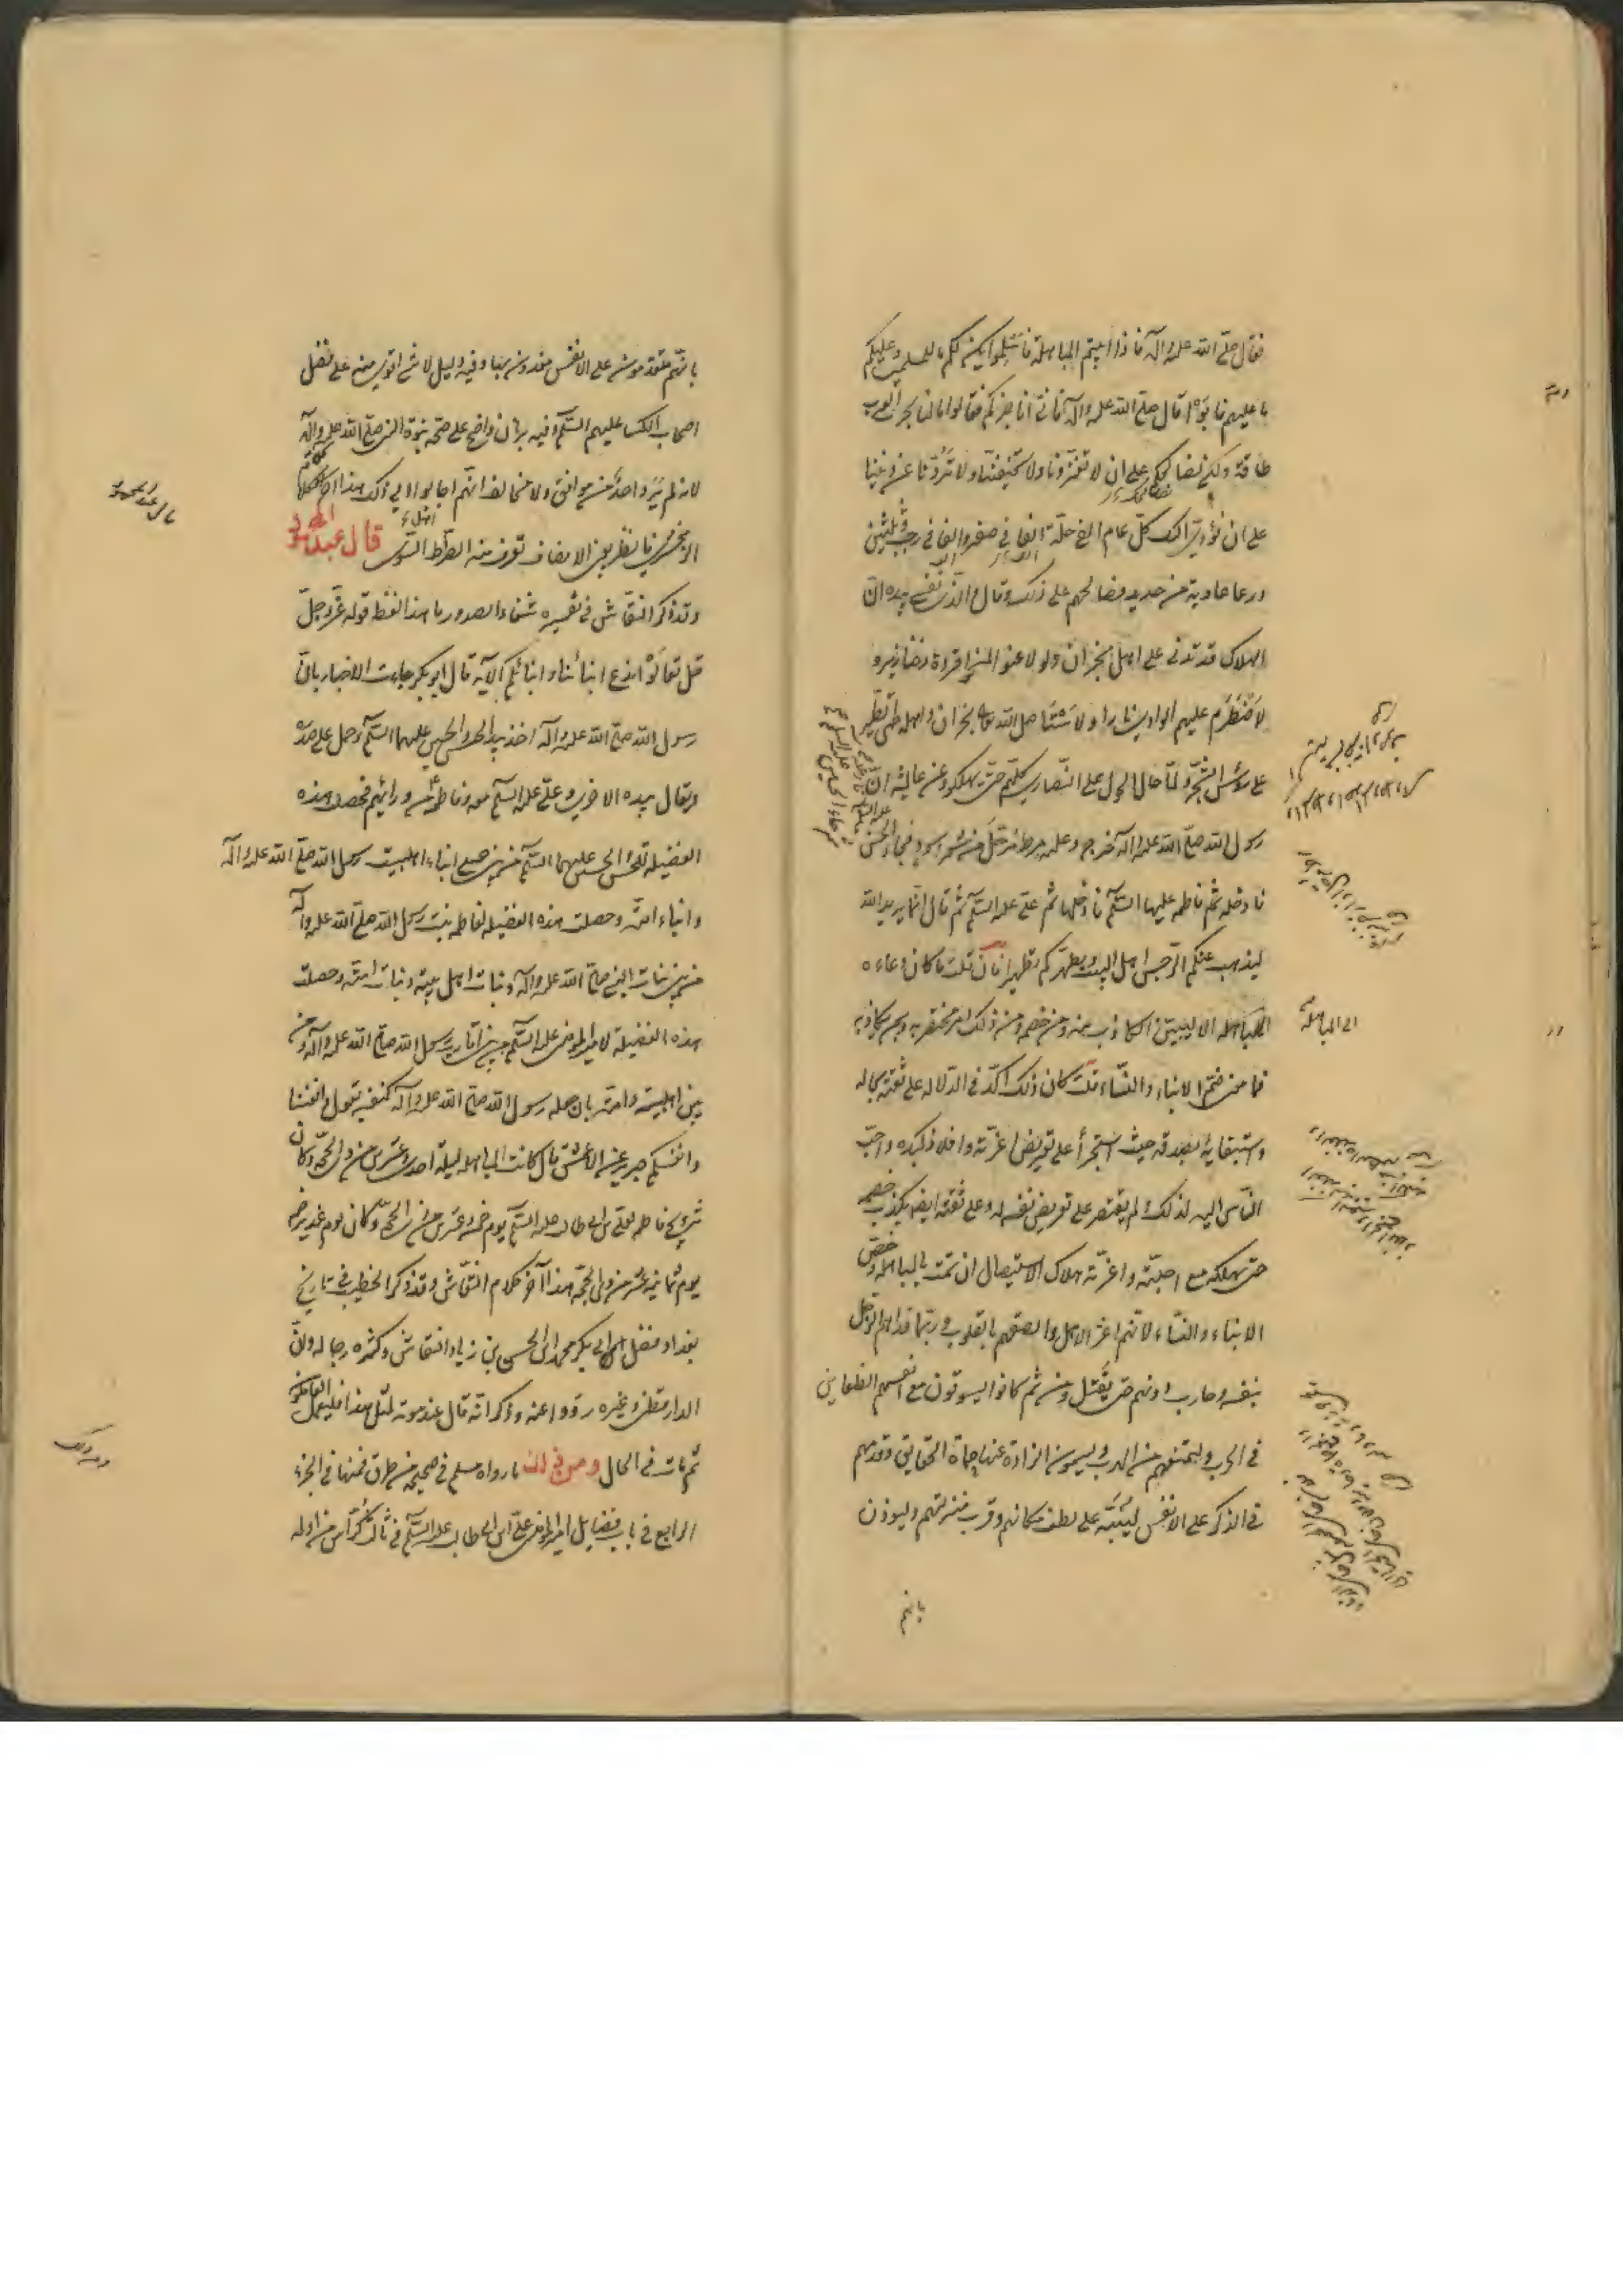 فقال صلّى الله عليه وآله فاذا ابيتم المباهلة فاسلموا يكن لكم ما للمسلمين وعليكم
ما عليهم فابوا قال صلّى الله عليه وآله فانّى اناجزكم فقالوا ما لنا بحرب العرب
طاقة ولكن نصالحك على ان لا تغزونا ولا تخيفنا ولا تردّنا عن ديننا
على ان نؤدّى اليك كلّ عام الفى حلّة الفا فى صفر والفا فى رجب وثلثين
درعا عادية من حديد فصالحهم على ذلك وقال والّذى نفسى بيده انّ
الهلاك قد تدلى على اهل نجران ولو لاعنوا لمسخوا قردة وخنازير و
لاضطرم عليهم الوادى نارا ولاستأصل الله تعالى نجران واهله حتى الطير
على رؤس الشجر ولمّا حال الحول على النّصارى كلّهم حتى يهلكوا وعن عايشه انّ
رسول الله صلّى الله عليه وآله خرج وعليه مرط مرحّل من شعر اسود فجاء الحسن
فادخله ثمّ فاطمه عليها السّلم فادخلها ثم على عليه السّلم ثم قال انّما يريد الله
ليذهب عنكم الرّجس اهل البيت ويطهّركم تطهيرا فان قلت ما كان دعاءه
الى المباهله الا ليتبيّن الكاذب منه ومن خصمه ومن ذلك امر يختص به وبمن يكاذبه
فما معنى ضمّ الابناء والنّساء قلت كان ذلك اكّد فى الدّلاله على ثقته بحاله
واستيقانه بصدقه حيث استجرأ على تعريض اعزّته وافلاذ كبده واحبّ
النّاس اليه لذلك ولم يقتصر على تعريض نفسه له وعلى ثقته ايضا بكذب خصمه
حتى يهلك مع احبّته واعزّته هلاك الاستيصال ان تمت المباهله وخصّ
الابناء والنّساء لانّهم اعزّ الاهل والصقهم بالقلوب وربّما فداهم الرّجل
بنفسه وحارب دونهم حتى يقتل ومن ثمّ كانوا يسوقون مع انفسهم الظعاين
فى الحرب لتمنعهم من الهرب ويسمون الزادة عنها حماة الحقايق وقدّمهم
فى الذكر على الانفس لينبّه على لطف مكانهم وقرب منزلتهم وليوذن
بانهم
الى المباهلة
بانّهم مقدّمون على الانفس مفدون بها وفيه دليل لا شى اقوى منه على فضل
اصحاب الكسا عليهم السّلم وفيه برهان واضح على صحّة نبوّة النبى صلّى الله عليه وآله
لانه لم يرو احد من موافق ولا مخالف انّهم اجابوا الى ذلك هذا آخر كلام
الزمخشرى فانظر بعين الانصاف تعرف منه الصّراط السّوى قال عبد المحمود
وقد ذكر النقّاش فى تفسيره شفاء الصدور ما هذا لفظه قوله عزّوجلّ
قل تعالوا ندع ابنائنا وابنائكم الآية قال ابو بكر جاءت الاخبار بانّ
رسول الله صلّى الله عليه وآله اخذ بيد الحسن والحسين عليهما السّلم وحمل على صدره
ويقال بيده الاخرى وعلىّ عليه السّلم معه وفاطمة من ورائهم فحصلت هذه
الفضيله للحسن والحسين عليهما السّلم من بين جميع ابناء اهل بيت رسول الله صلّى الله عليه وآله
وابناء امّته وحصلت هذه الفضيله لفاطمه بنت رسول الله صلّى الله عليه وآله
من بين بنات النبى صلّى الله عليه وآله وبنات اهل بيته وبنات امّته وحصلت
هذه الفضيلة لامير المؤمنين عليه السّلم من بين اقارب رسول الله صلّى الله عليه وآله ومن
بين اهل بيته وامّته بان جعله رسول الله صلّى الله عليه وآله كنفسه يقول وانفسنا
وانفسكم جرير عن الاعمش قال كانت المباهله ليلة احدى وعشرين من ذى الحجّة وكان
تزويج فاطمه لعلى بن ابى طالب عليه السّلم يوم خمسة وعشرين من ذى الحجّة وكان يوم غدير خم
يوم ثمانية عشر من ذى الحجّة هذا آخر كلام النقّاش وقد ذكر الخطيب فى تاريخ
بغداد فضل ابى بكر محمد بن الحسن بن زياد النقاش وكثره رجاله وانّ
الدارقطنى وغيره رووا عنه وذكر انّه قال عند موته لمثل هذا فليعمل العاملون
ثم مات فى الحال ومن ذلك ما رواه مسلم فى صحيحه من طرق فمنها فى الجزء
الرابع فى باب فضايل امير المؤمنين علىّ بن ابى طالب عليه السّلم فى ثالث كرّاس من اوله
قال عبد المحمود
ومن ذلك